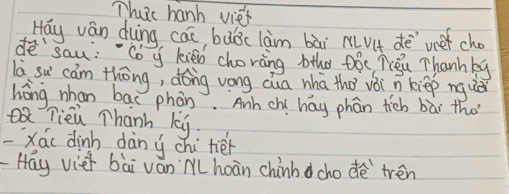 Thực hành viết
Hãy vận dụng các bước làm bài NLVH để viết cho
đề sau: "Có ý kiến cho rằng bthơ Độc Tiểu Thanh ký
là sự cảm thông, đồng vọng của nhà thơ với n kiếp người
hồng nhan bạc phận. Anh chị hãy phân tích bài thơ
ĐR Tiểu Thanh ký.
- Xác định dàn ý chi tiết
- Hãy viết bài văn NL hoàn chỉnh cho đề trên